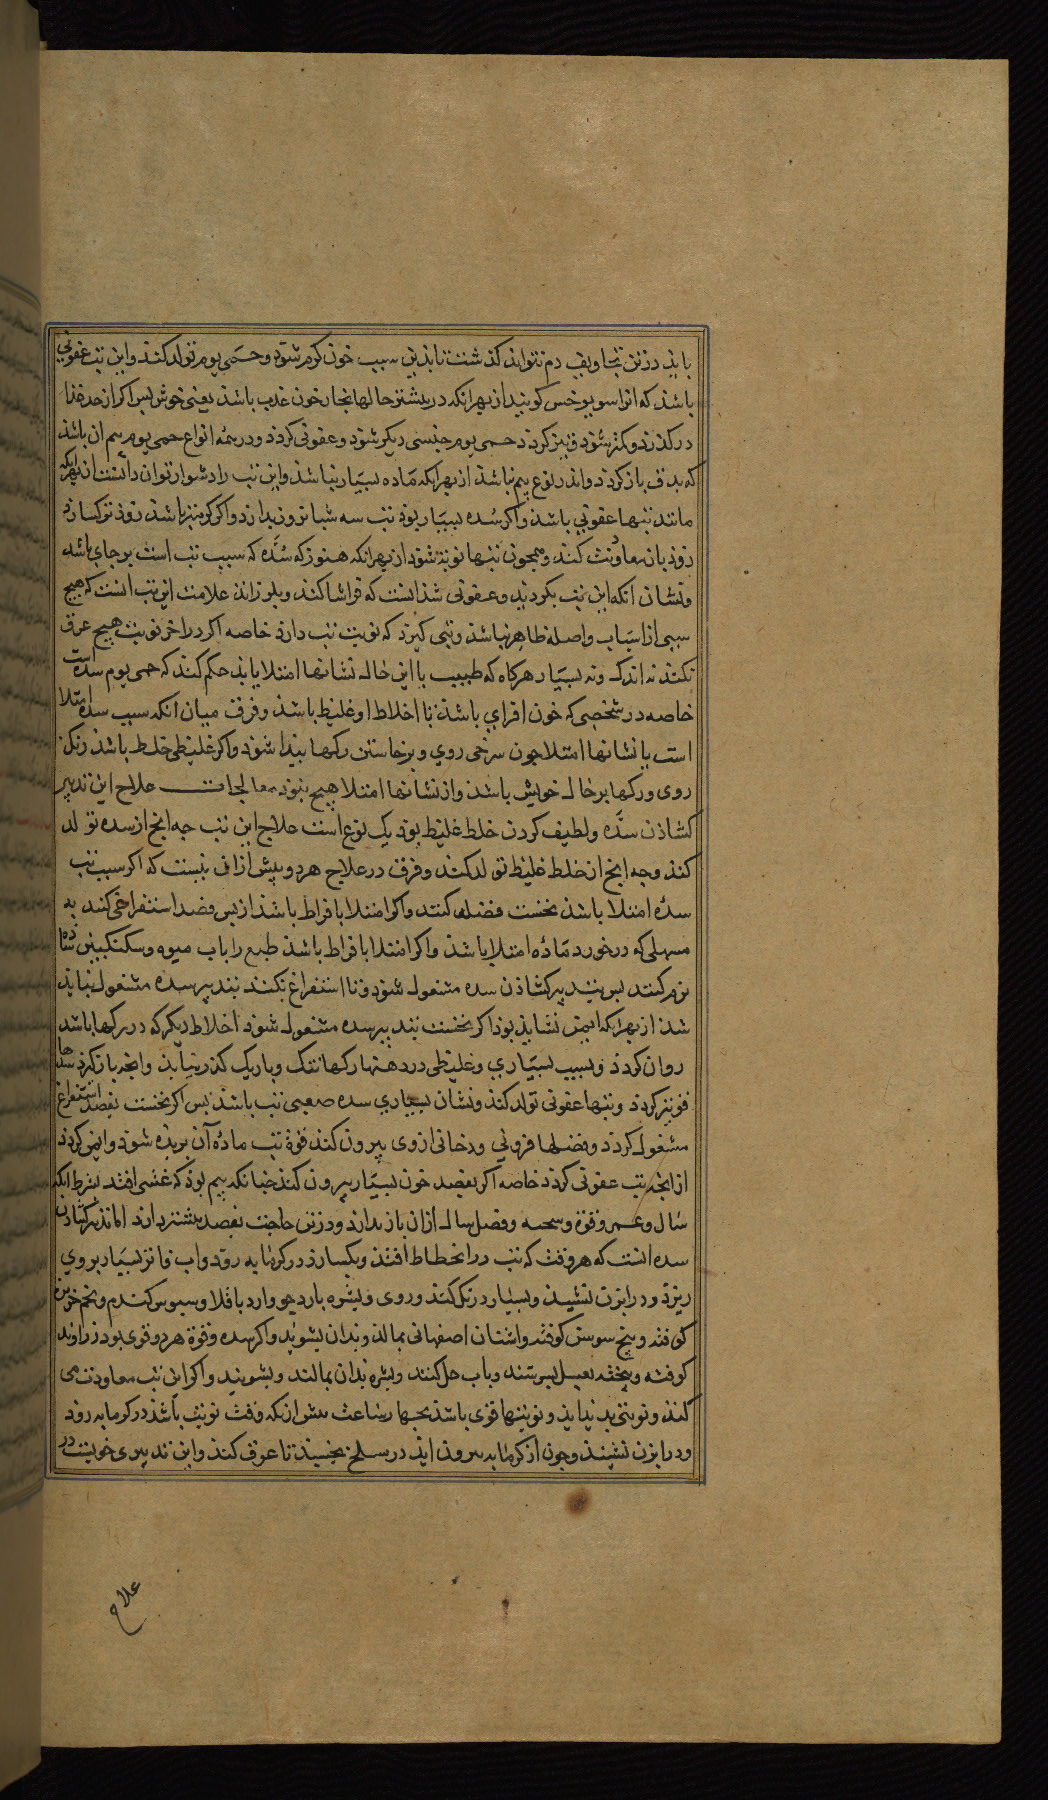 باید درتن تجاویف دم نتواند کذشت تا بذین سبب خون کرم شود وحمی یوم تولد کند واین تب عفونی
باشذ که انرا سونوخس کویند از بهر انکه در بیشتر حالها بخار خون عذب باشذ یعنی خوش بس اکر از حد غذا
در کذرد و کثر شود و تیز کردد حمی یوم جنسی دیکر شود و عفونی کردد و در همه انواع حمی یوم بیم ان باشد
که بدق باز کردد واندر نوع بیم نباشذ از بهر انکه ماده بسیار نباشذ واین تب را دشوار توان دانست از بهر انکه
مانند تبها عفونی باشذ واکر سده بسیار بود تب سه شبانروز بدارد واکر کمتر باشذ زوذ تر کسارد
زوذ بان معاونت کند وهمجون تبها نوبة شود از بهر انکه هنوز که سده که سبب تب است بر جای باشد
ونشان انکه این تب بکردید و عفونی شد انست که فراشا کند و بلرزاند علامت این تب انست که هیج
سببی از اسباب واصله ظاهر نباشذ وتبی کیرد که نوبت تب دارد خاصه اکر در اخر نوبت هیج عرق
نکند نه اندک ونه بسیار هرکاه که طبیب با این حال نشانها امتلا یابد حکم کند که حمی یوم سده است
خاصه در شخصی که خون افزای باشذ با اخلاط او غلیظ باشذ و فرق میان انکه سبب سده امتلا
است با نشانها امتلا جون سرخی روی و برخاستن رکها بیدا شود واکر غلیظی خلط باشذ رنک
روی ورکها بر حال خویش باشذ واز نشانها امتلا هیج نبود معالجات علاج این تدبیر
کشاذن سده ولطیف کردن خلط غلیظ بود یک نوع است علاج این تب جه انج از سده تولد
کند وجه انج از خلط غلیظ تولد کند وفرق در علاج هردو بیش ازان نیست که اکر سبب تب
سده امتلا باشذ نخست فصد کنند واکر امتلا بافراط باشذ از بس فصد استفراخی کنند به
مسهلی که درخورد ماده امتلا باشذ واکر امتلا بافراط باشذ طبع را باب میوه وسکنکبین ساده
نرم کنند بس بتدبیر کشاذن سده مشغول شود وتا استفراغ نکنند بتدبیر سده مشغول نباید
شذ از بهر انکه ایمن نشاید بوذ اکر نخست بتدبیر سده مشغول شود اخلاط دیکر که در رکها باشد
روان کردد وبسبب بسیاری وغلیظی در دهنها رکها تنک وباریک کذر نیابد وانجه باز کردد سدها
قوی تر کردد وتبها عفونی تولد کند ونشان بسیاری سده صعبی تب باشذ بس اکر نخست بفصد استفراغ
مشغول کردد وفضلها فزونی ودخانی ازوی بیرون کند قوة تب ماده آن بریده شود وایمن کردد
از انجه تب عفونی کردد خاصه اکر بفصد خون بسیار بیرون کند جنانکه بیم بوذ که غشی افتد بشرط انکه
سال وعمر وقوة وسحنه وفصل سال ازان باز ندارد ودرتن حاجت بفصد بیشتر دارند اما تدبیر کشاذن
سده انست که هر وقت که تب در انحطاط افتد وبکسارد در کرمابه روذ واب فاتر بسیار بر وی
ریزد ودر ابزن نشیند وبسیار درنک کند وروی وبشره بارد جو وارد باقلا وسبوس کندم وتخم خربزه
کوفته وبیخ سوسن کوفته واشنان اصفهانی بمالند وبدان بشوید واکر سده وقوة هردو قوی بود زراوند
کوفته وبیخته بعسل بسرشند وباب حل کنند وبشره بدان بمالند وبشویند واکر این تب معاودت می
کند ونوبتی بدید اید ونوبتها قوی باشذ بجهار ساعت بیش ازانکه وقت نوبت باشذ در کرمابه روذ
ودر ابزن نشیند وجون از کرمابه بیرون اید در مسلخ بخسبذ تا عرق کند واین تدبیری خوبست در
علاج